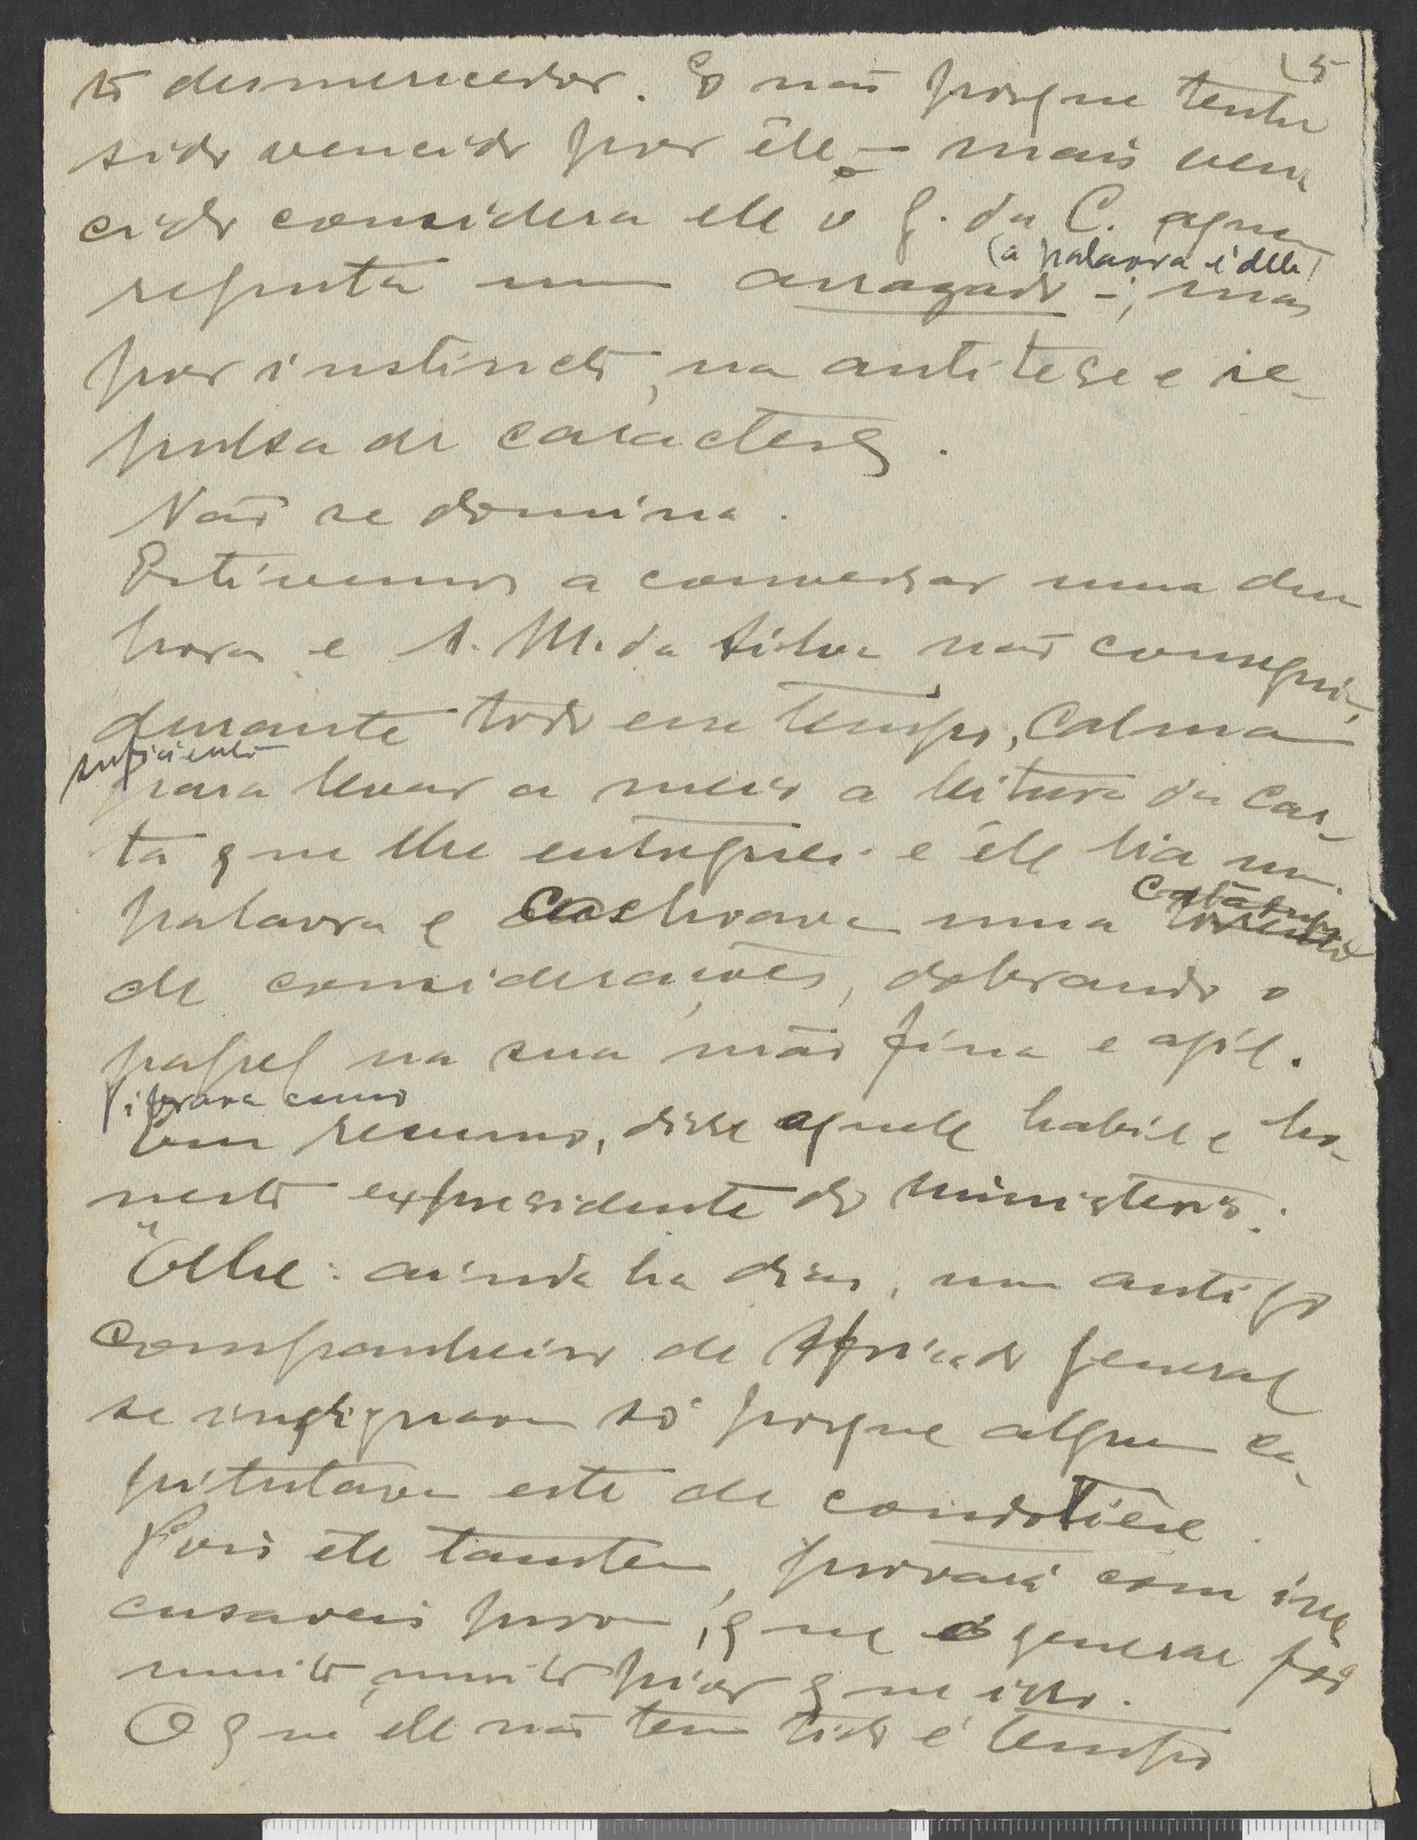 5
to desmerecedor. E não porque tenha
sido vencido por êle – mais ven
cido considera ele o G. da C. a quem
(a palavra é dele)
reputa um arrazado –; mas
por instincto, na antitese e re-
pulsa de caracteres.
Não se domina.
Estivemos a conversar uma
hora e A. M. da Silva não conseguiu,
durante todo esse tempo, calma
suficiente
para levar a meio a leitura da car-
ta que lhe entreguei e êle lia uma
palavra e cachoava uma
de considerações, dobrando o
papel na sua mão fina e agil.
Vibrava como
Em resumo, disse aquele habil e ho-
nesto expresidente do ministerio:
"Olhe: ainda ha dias, um antigo
companheiro de Africa do general
se indignava só porque alguem ca-
pitulava este de condotiére.
Pois êle tambem, provará com irre
cusaveis provas, que o general foi
muito, muito pior que isso.
O que ele não tem tido é tempo